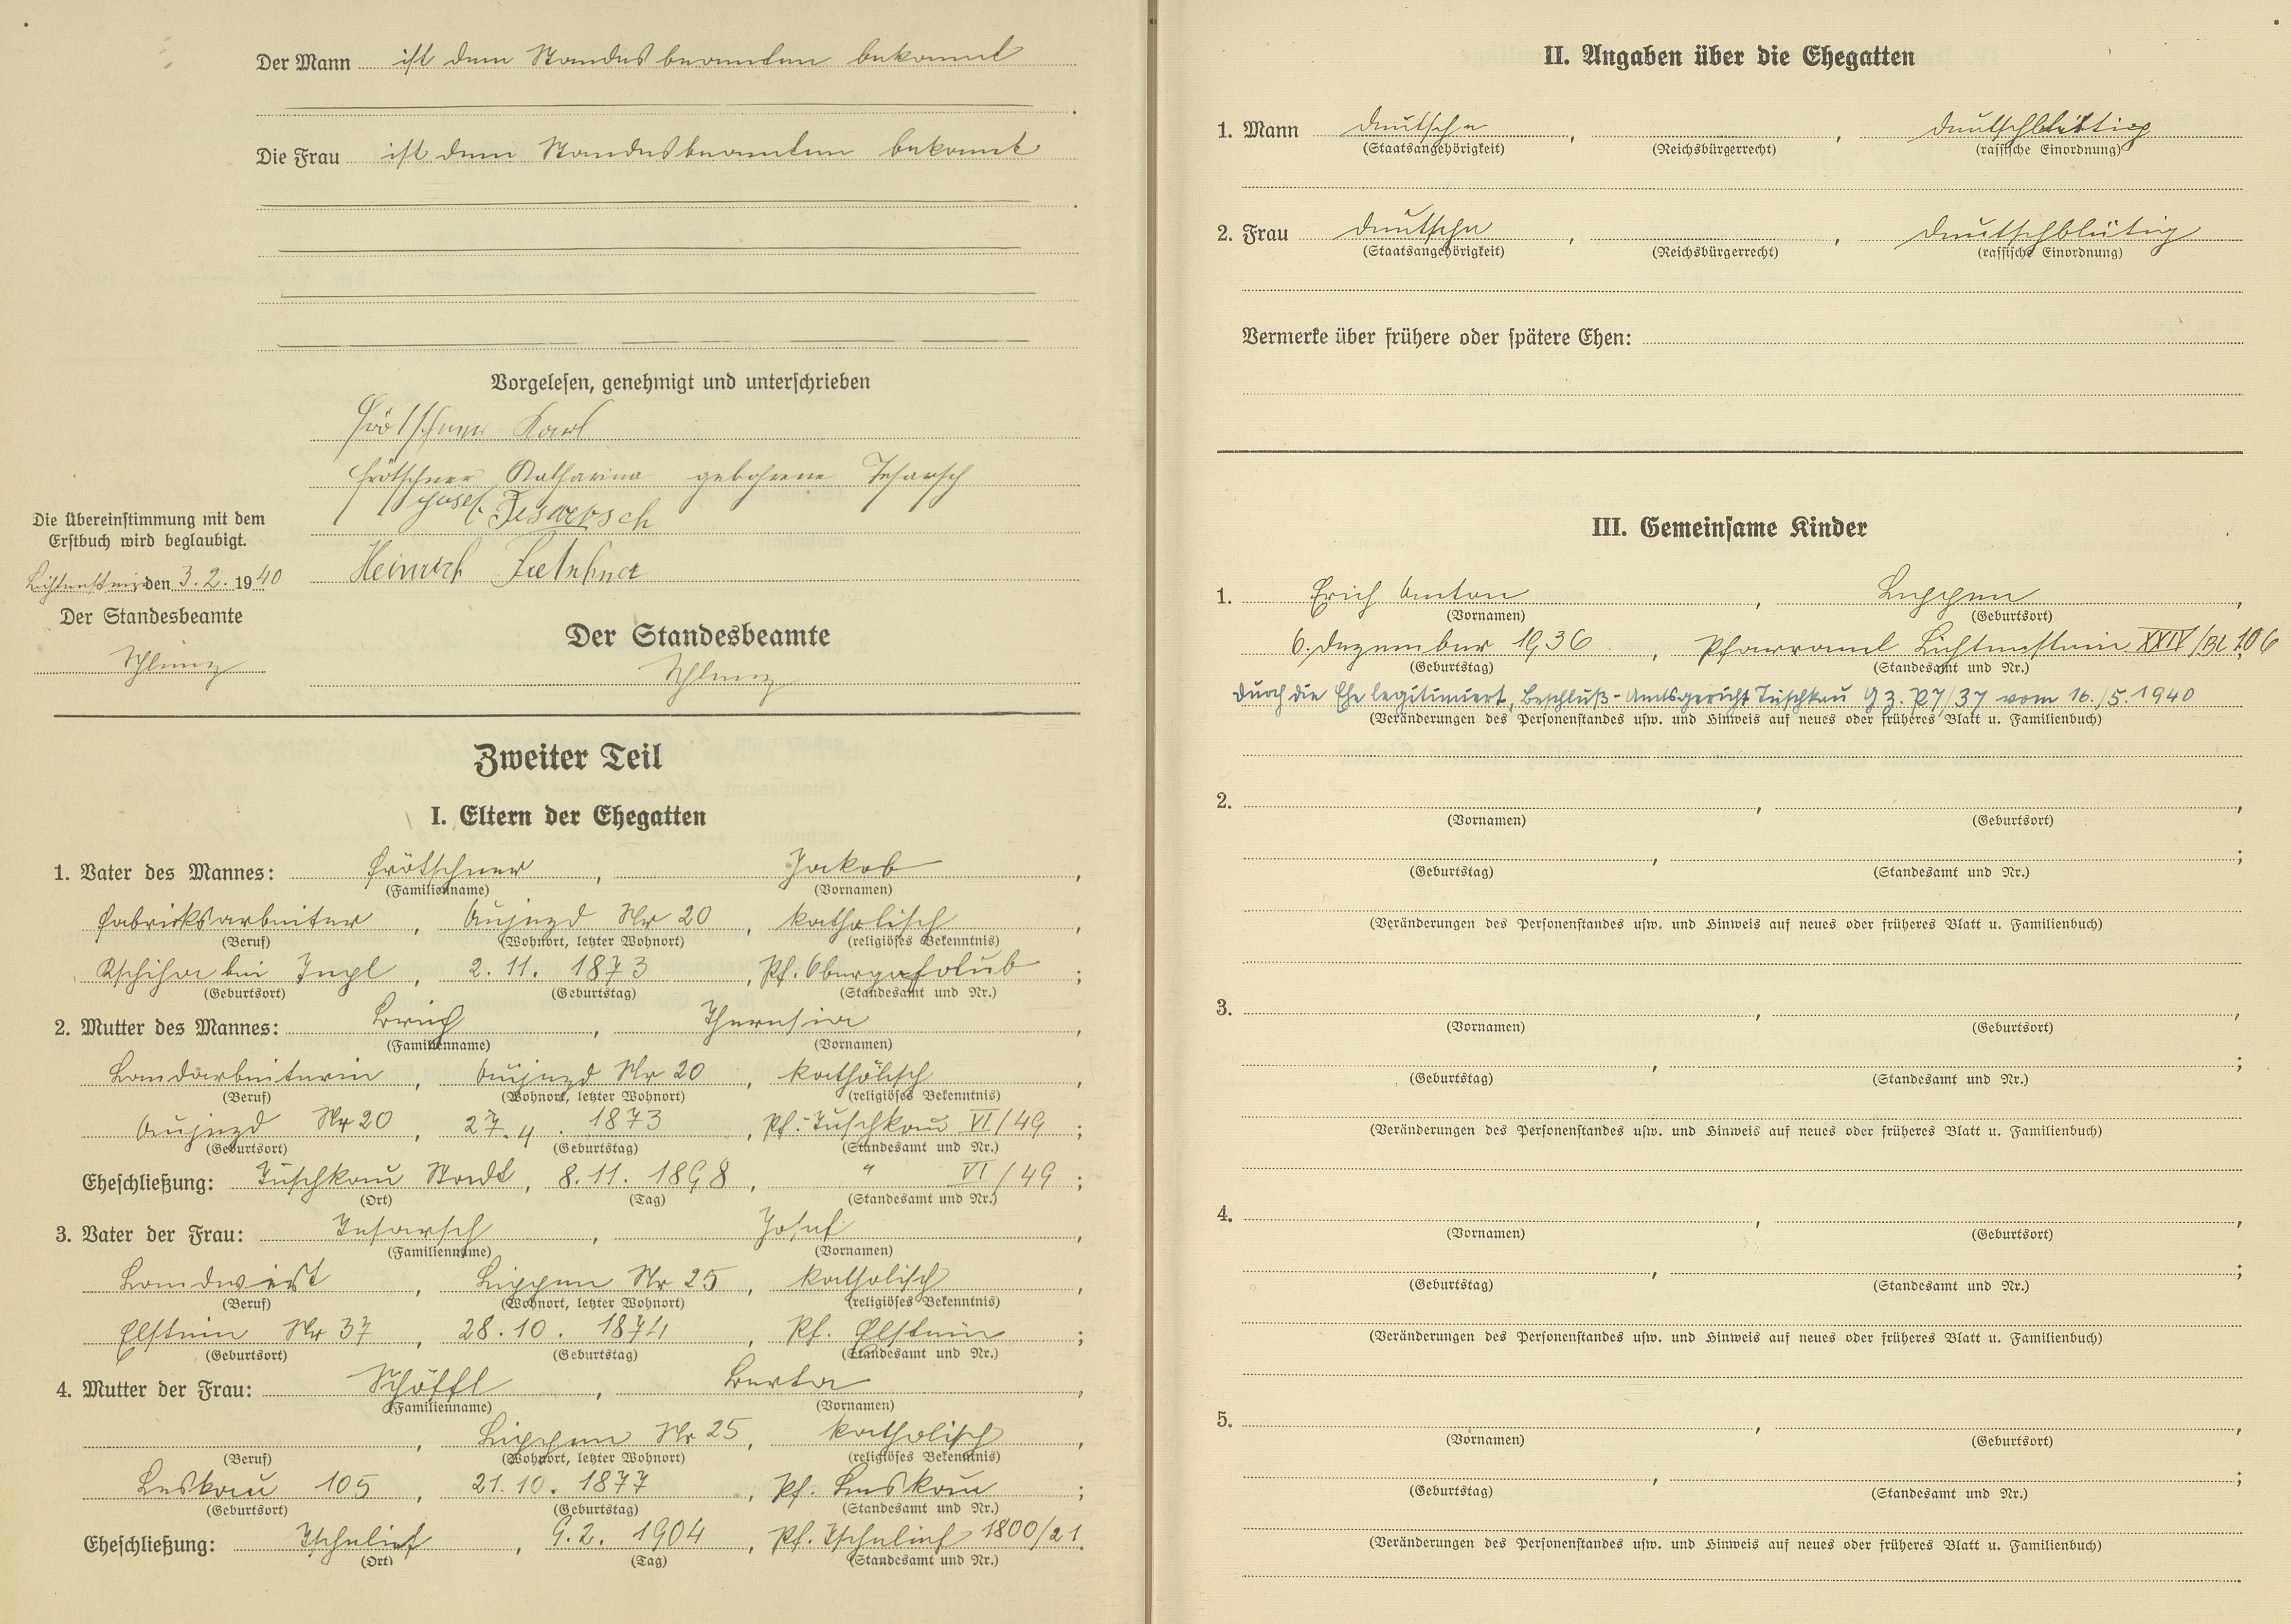 Der Mann ist dem Standesbeamten bekannt
Die Frau ist dem Standesbeamten bekannt
Vorgelesen, genehmigt und unterschrieben
Frötschner Karl
Frötschner Katharina gebohrene Tesarsch
Josef Tesarsch
Heinrich
Die Übereinstimmung mit dem
Erstbuch wird beglaubigt.
Lichtenstein den 3. 2. 1940
Der Standesbeamte
Schlenz
Der Standesbeamte
Schlenz
Zweiter Teil
I. Eltern der Ehegatten
1. Vater des Mannes: Frötschner, Jakob,
(Familienname) (Vornamen)
Fabriksarbeiter, Aujezd Nr 20, katholisch,
(Beruf) (Wohnort, letzter Wohnort) (religiöses Bekenntnis)
bei, 2. 11. 1873, Pf. Obergosolub;
(Geburtsort) (Geburtstag) (Standesamt und Nr.)
2. Mutter des Mannes: , Theresia,
(Familienname) (Vornamen)
Landarbeiterin, Aujezd Nr 20, katholisch,
(Beruf) (Wohnort, letzter Wohnort) (religiöses Bekenntnis)
Aujezd Nr 20, 27. 4. 1873, Pf. Tuschkau VI/49;
(Geburtsort) (Geburtstag) (Standesamt und Nr.)
Eheschließung: Tuschkau Stadt, 8. 11. 1898, " VI/49;
(Ort) (Tag) (Standesamt und Nr.)
3. Vater der Frau: Tesarsch, Josef,
(Familienname) (Vornamen)
Landwirt, Lippen Nr 25, katholisch,
(Beruf) (Wohnort, letzter Wohnort) (religiöses Bekenntnis)
Elstein Nr 37, 28. 10. 1874, Pf. Elstein;
(Geburtsort) (Geburtstag) (Standesamt und Nr.)
4. Mutter der Frau: Schöffl, Berta,
(Familienname) (Vornamen)
, Lippen Nr 25, katholisch,
(Beruf) (Wohnort, letzter Wohnort) (religiöses Bekenntnis)
Leskau 105, 21. 10. 1877, Pf. Leskau;
(Geburtsort) (Geburtstag) (Standesamt und Nr.)
Eheschließung: Tschelief, 9. 2. 1904, Pf. Tschelief 1800/21.
(Ort) (Tag) (Standesamt und Nr.)
II. Angaben über die Ehegatten
1. Mann deutsche, , deutschblütig
(Staatsangehörigkeit) (Reichsbürgerrecht) (rassische Einordnung)
2. Frau deutsche, , deutschblütig
(Staatsangehörigkeit) (Reichsbürgerrecht) (rassische Einordnung)
Vermerke über frühere oder spätere Ehen:
III. Gemeinsame Kinder
1. Erich Anton, Lippen,
(Vornamen) (Geburtsort)
6. Dezember 1936, Pfarramt Lichtenstein XXIV/Bl 106
(Geburtstag) (Standesamt und Nr.)
durch die Ehe legitimiert, Beschluß-Amtsgericht Tuschkau G.Z. P7/37 vom 16./5. 1940
(Veränderungen des Personenstandes usw. und Hinweis auf neues oder früheres Blatt u. Familienbuch)
2. , ,
(Vornamen) (Geburtsort)
, ;
(Geburtstag) (Standesamt und Nr.)
(Veränderungen des Personenstandes usw. und Hinweis auf neues oder früheres Blatt u. Familienbuch)
3. , ,
(Vornamen) (Geburtsort)
, ;
(Geburtstag) (Standesamt und Nr.)
(Veränderungen des Personenstandes usw. und Hinweis auf neues oder früheres Blatt u. Familienbuch)
4. , ,
(Vornamen) (Geburtsort)
, ;
(Geburtstag) (Standesamt und Nr.)
(Veränderungen des Personenstandes usw. und Hinweis auf neues oder früheres Blatt u. Familienbuch)
5. , ,
(Vornamen) (Geburtsort)
, ;
(Geburtstag) (Standesamt und Nr.)
(Veränderungen des Personenstandes usw. und Hinweis auf neues oder früheres Blatt u. Familienbuch)